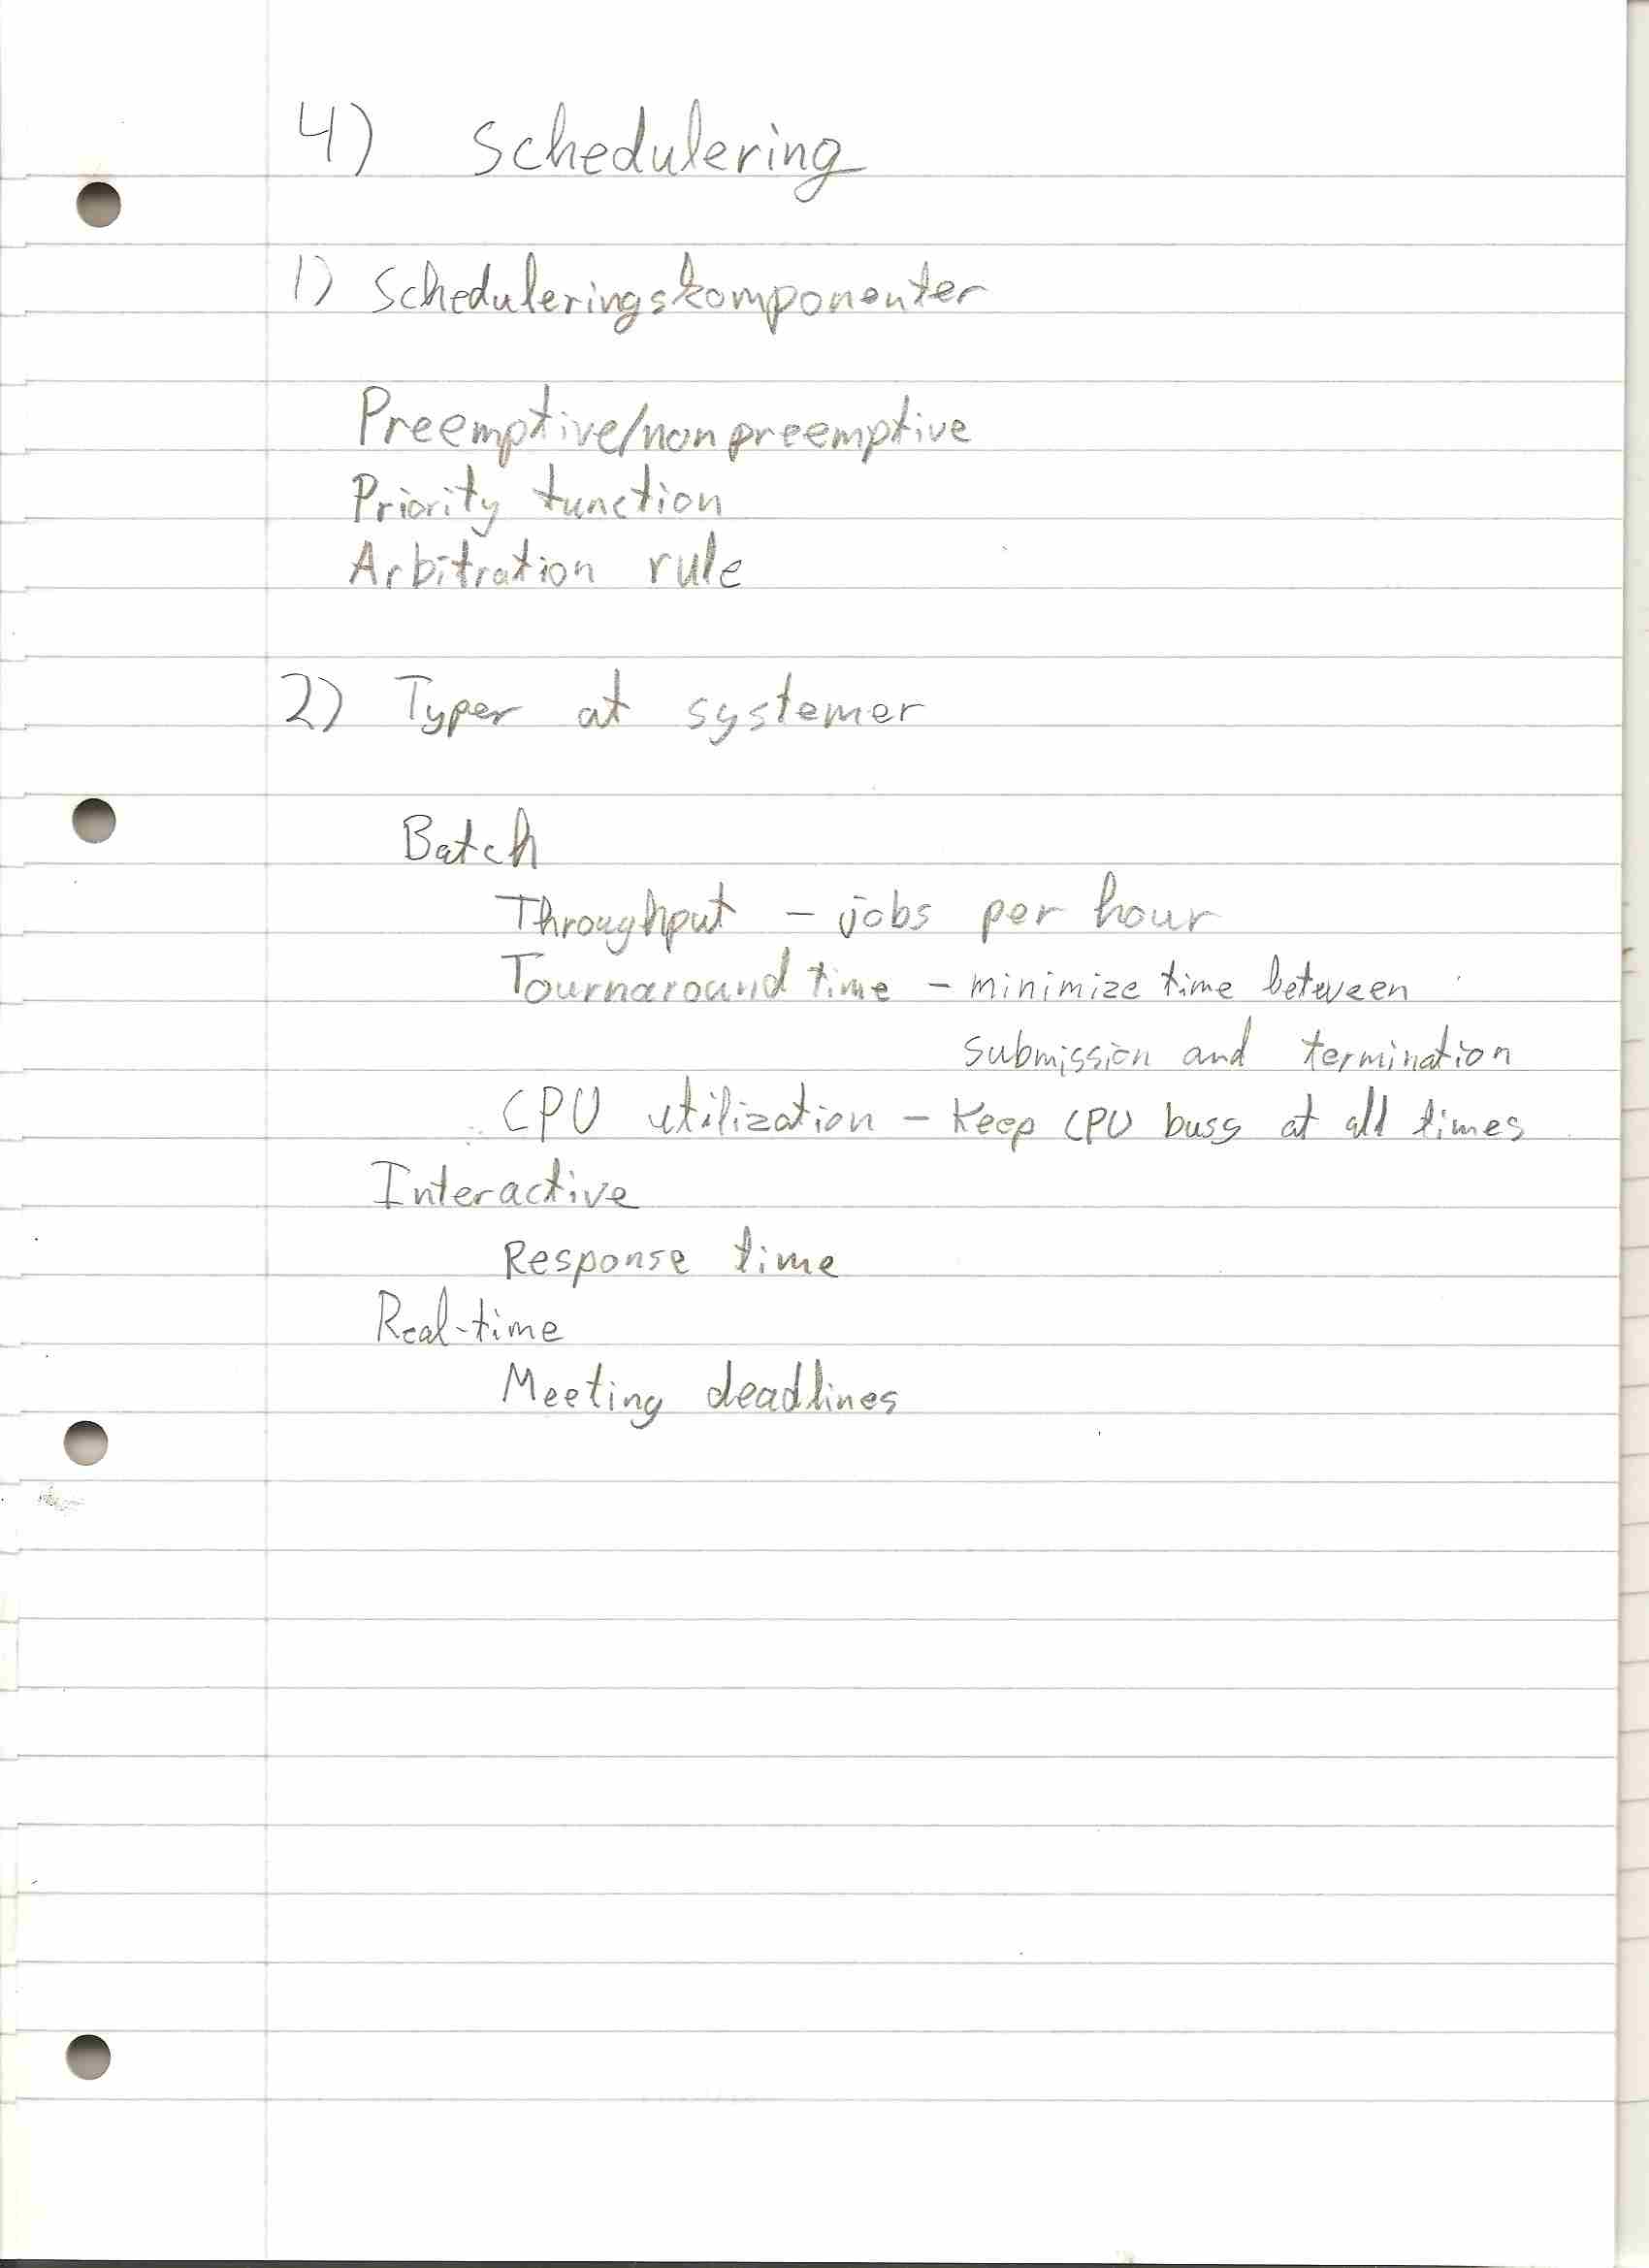 4) Schedulering
1) Scheduleringskomponenter
Preemptive/nonpreemptive
Priority function
Arbitration rule
2) Typer af systemer
Batch
Throughput - jobs per hour
Tournaround time - minimize time between
submission and termination
CPU utilization - Keep CPU busy at all times
Interactive
Response time
Real-time
Meeting deadlines